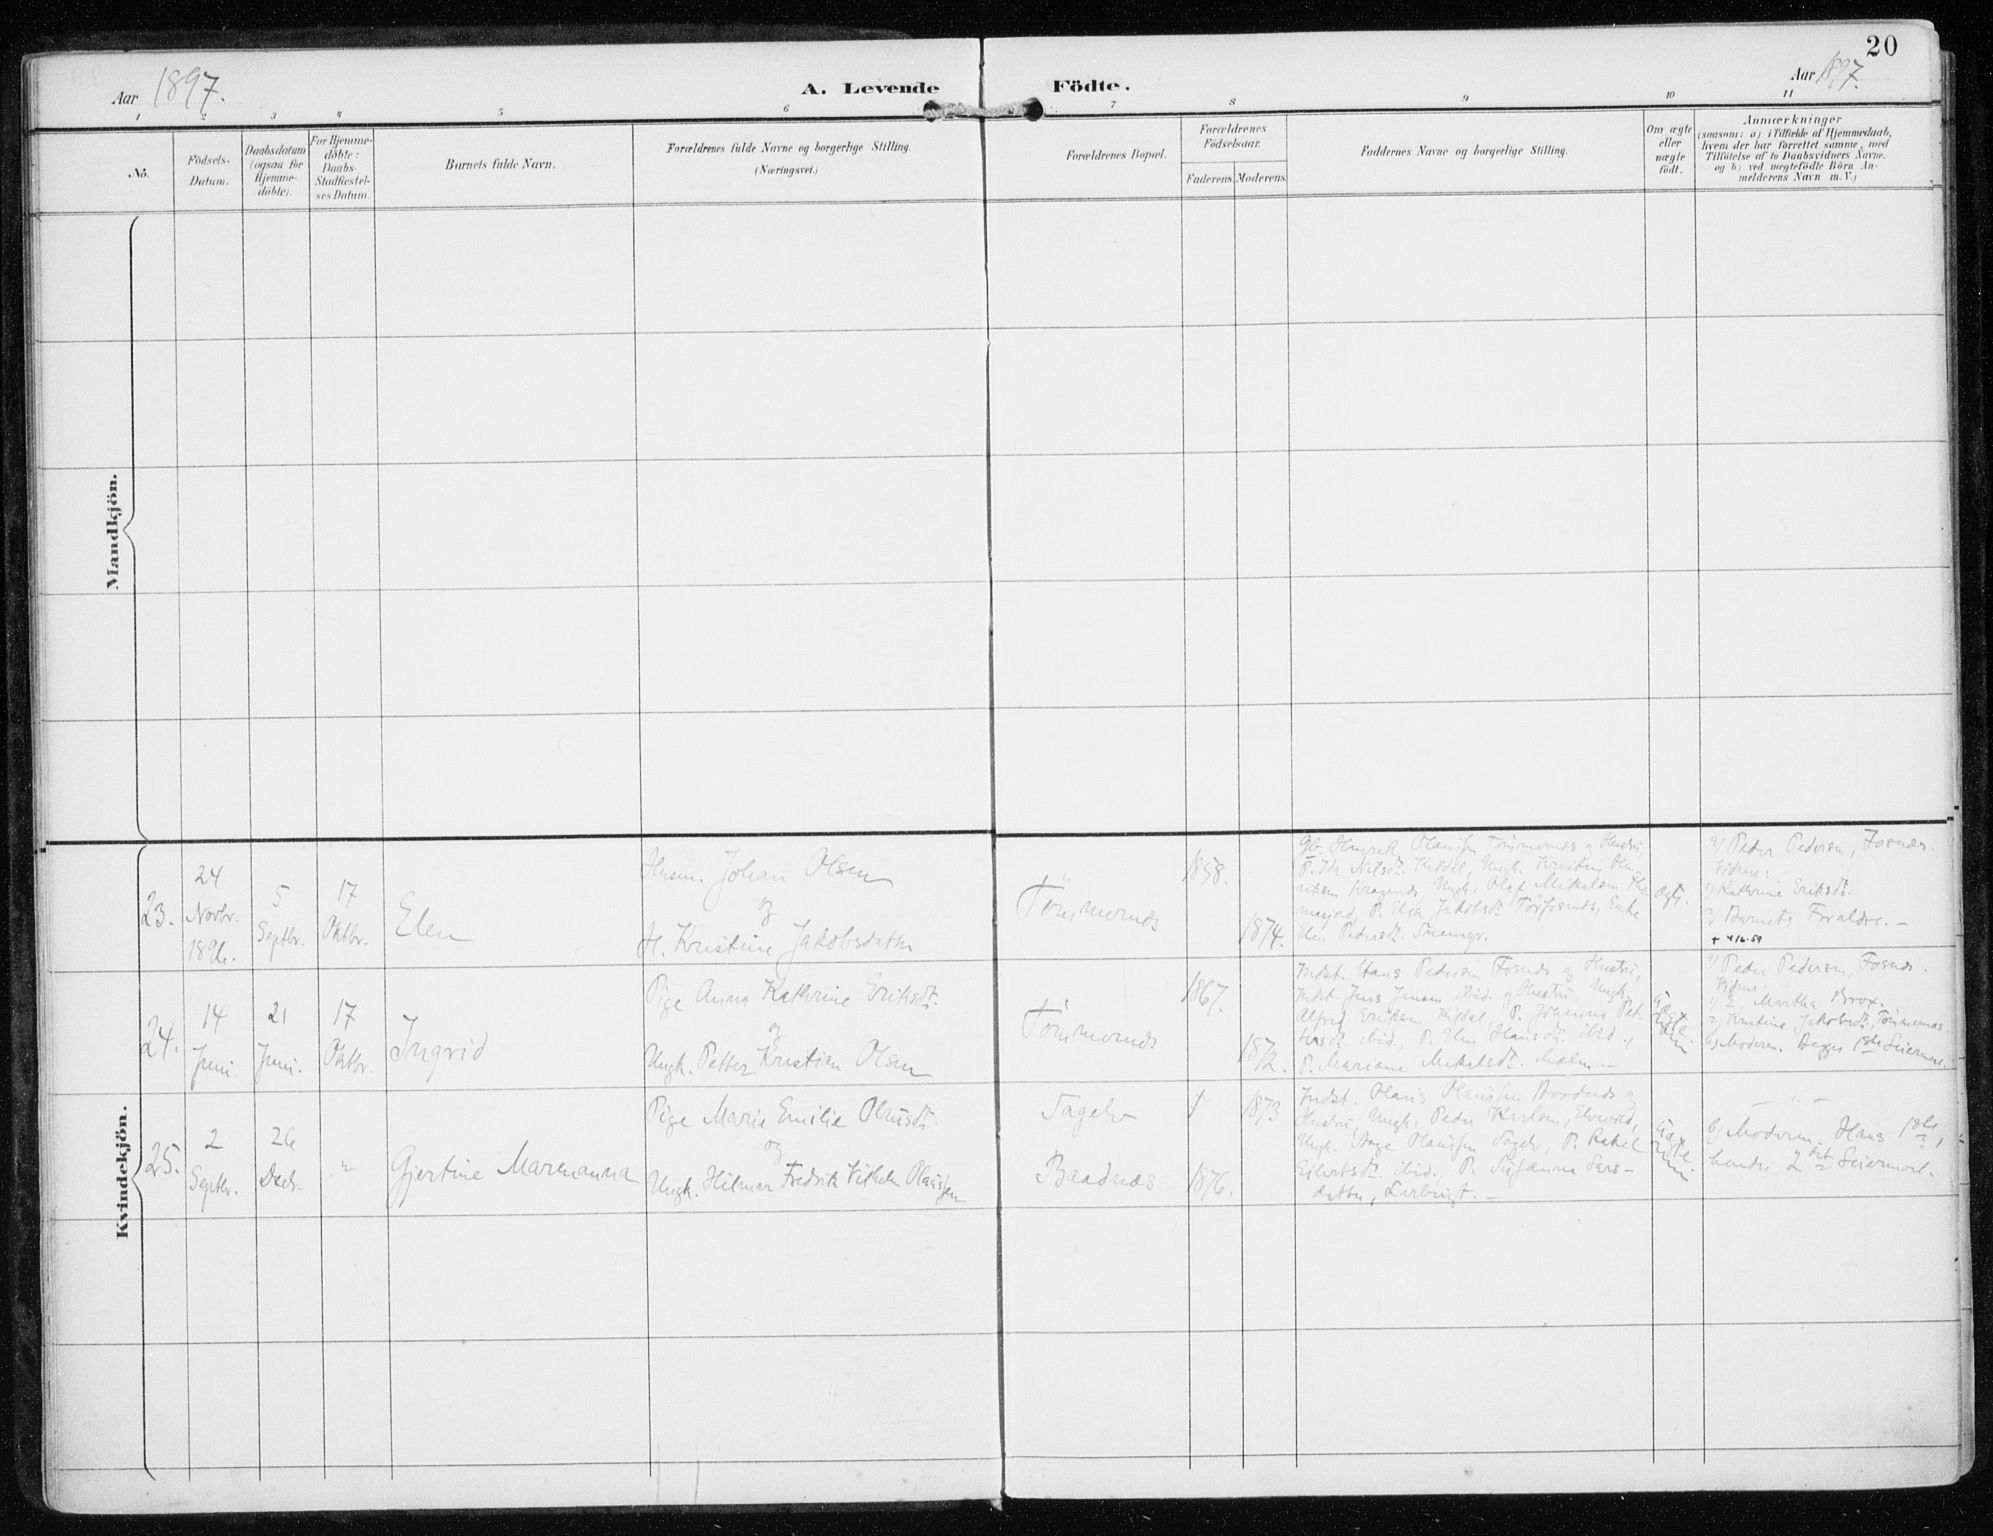 20
Aar 1897.
A. Levende Födte.
Aar 1897.
1 2 3 4 5 6 7 8 9 10 11
No.
Födsels-
Datum.
Daabsdatum
(ogsaa for
Hjemme-
döbte).
For Hjemme-
döbte:
Daabs-
Stadfæstel-
ses Datum.
Barnets fulde Navn.
Forældrenes fulde Navne og borgerlige Stilling.
(Næringsvei.)
Forældrenes Bopæl.
Forældrenes
Födselsaar.
Faderens.
Moderens.
Faddernes Navne og borgerlige Stilling.
Om ægte
eller
uægte
födt.
Anmærkninger
(saasom: a) i Tilfælde af Hjemmedaab,
hvem der har forrettet samme, med
Tilföielse af to Daabsvidners Navne,
og b) ved uægtefödte Börn An-
melderens Navn m. V.)
Mandkjön.
Kvindekjön.
23.
24
Novbr.
1896.
5
Septbr.
17
Oktbr.
Elen
Husm. Johan Olsen
og
H. Kristine Jakobsdatter
Tömmernæs
1858.
1874.
Gb. Henrik Olaussen Tömmernæs og Hustru,
P. Ida Nilsdt. Kildal, Ungk. Kristian Hen-
riksen Ungk. Olaf Mikalsen
P. Elisa Jakobsdt. Enke
Elen Pedersdt.
Ægte.
a) Peder Pedersen, Fosnæs.
Vidner:
1) Kathrine Eriksdt.
2) Barnets Forældre. –
+ 4/6-59
24.
14
Juni.
21
Juni.
17
Oktbr.
Ingrid
Pige Anna Kathrine Eriksdt.
og
Ungk. Petter Kristian Olsen
Tömmernæs
1867.
1872.
Indst. Hans Pedersen Fosnæs og Hustru,
Indst. Jens Jensen ibid. og Hustru, Ungk.
Alfred Eriksen Kildal, P. Johanna Pet-
tersdt. ibid., P. Elen Hansdt. ibid.,
P. Mariane Mikalsdt. Malm. –
Uægte.
a) Peder Pedersen, Fosnæs.
Vidner:
1) Martha Brox.
2) Kristine Jakobsdt., Tömmernæs.
b) Moderen. Begges 1ste Leiermaal.
25.
2
Septbr.
26
Decbr.
"
Gjertine Marenanna
Pige Marie Emilie Olausdt.
og
Ungk. Hilmar Fredrik Vilhelm Olaussen
Tagelv
Baadnæs
1873
1876.
Indst. Olaus Olaussen Baadnæs og
Hustru, Ungk. Peder Karlsen, Elvevold,
Ungk. Aage Olaussen Tagelv, P. Rakel
Eilertsdt. ibid., P. Susanna Lars-
datter,
Uægte.
– " –
b) Moderen. Hans 1ste,
hendes 2det Leiermaal.